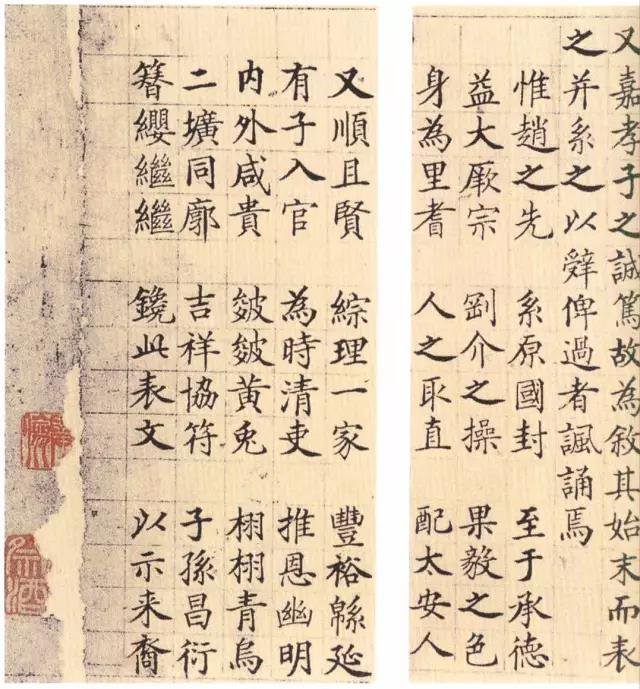 又嘉孝子之誠篤故為敘其始末而表
之并系之以辤俾過者諷誦焉
惟趙之先 系原國封 至于承德
益大厥宗 劉介之操 果毅之色
身為里耆 人之取直 配太安人
又順且賢 綜理一家 豐裕緜延
有子入官 為時清吏 推恩幽明
内外咸貴 皴皴黄兎 栩栩青烏
二壙同廓 吉祥協符 子孫昌衍
簪纓繼繼 鑱此表文 以示来裔